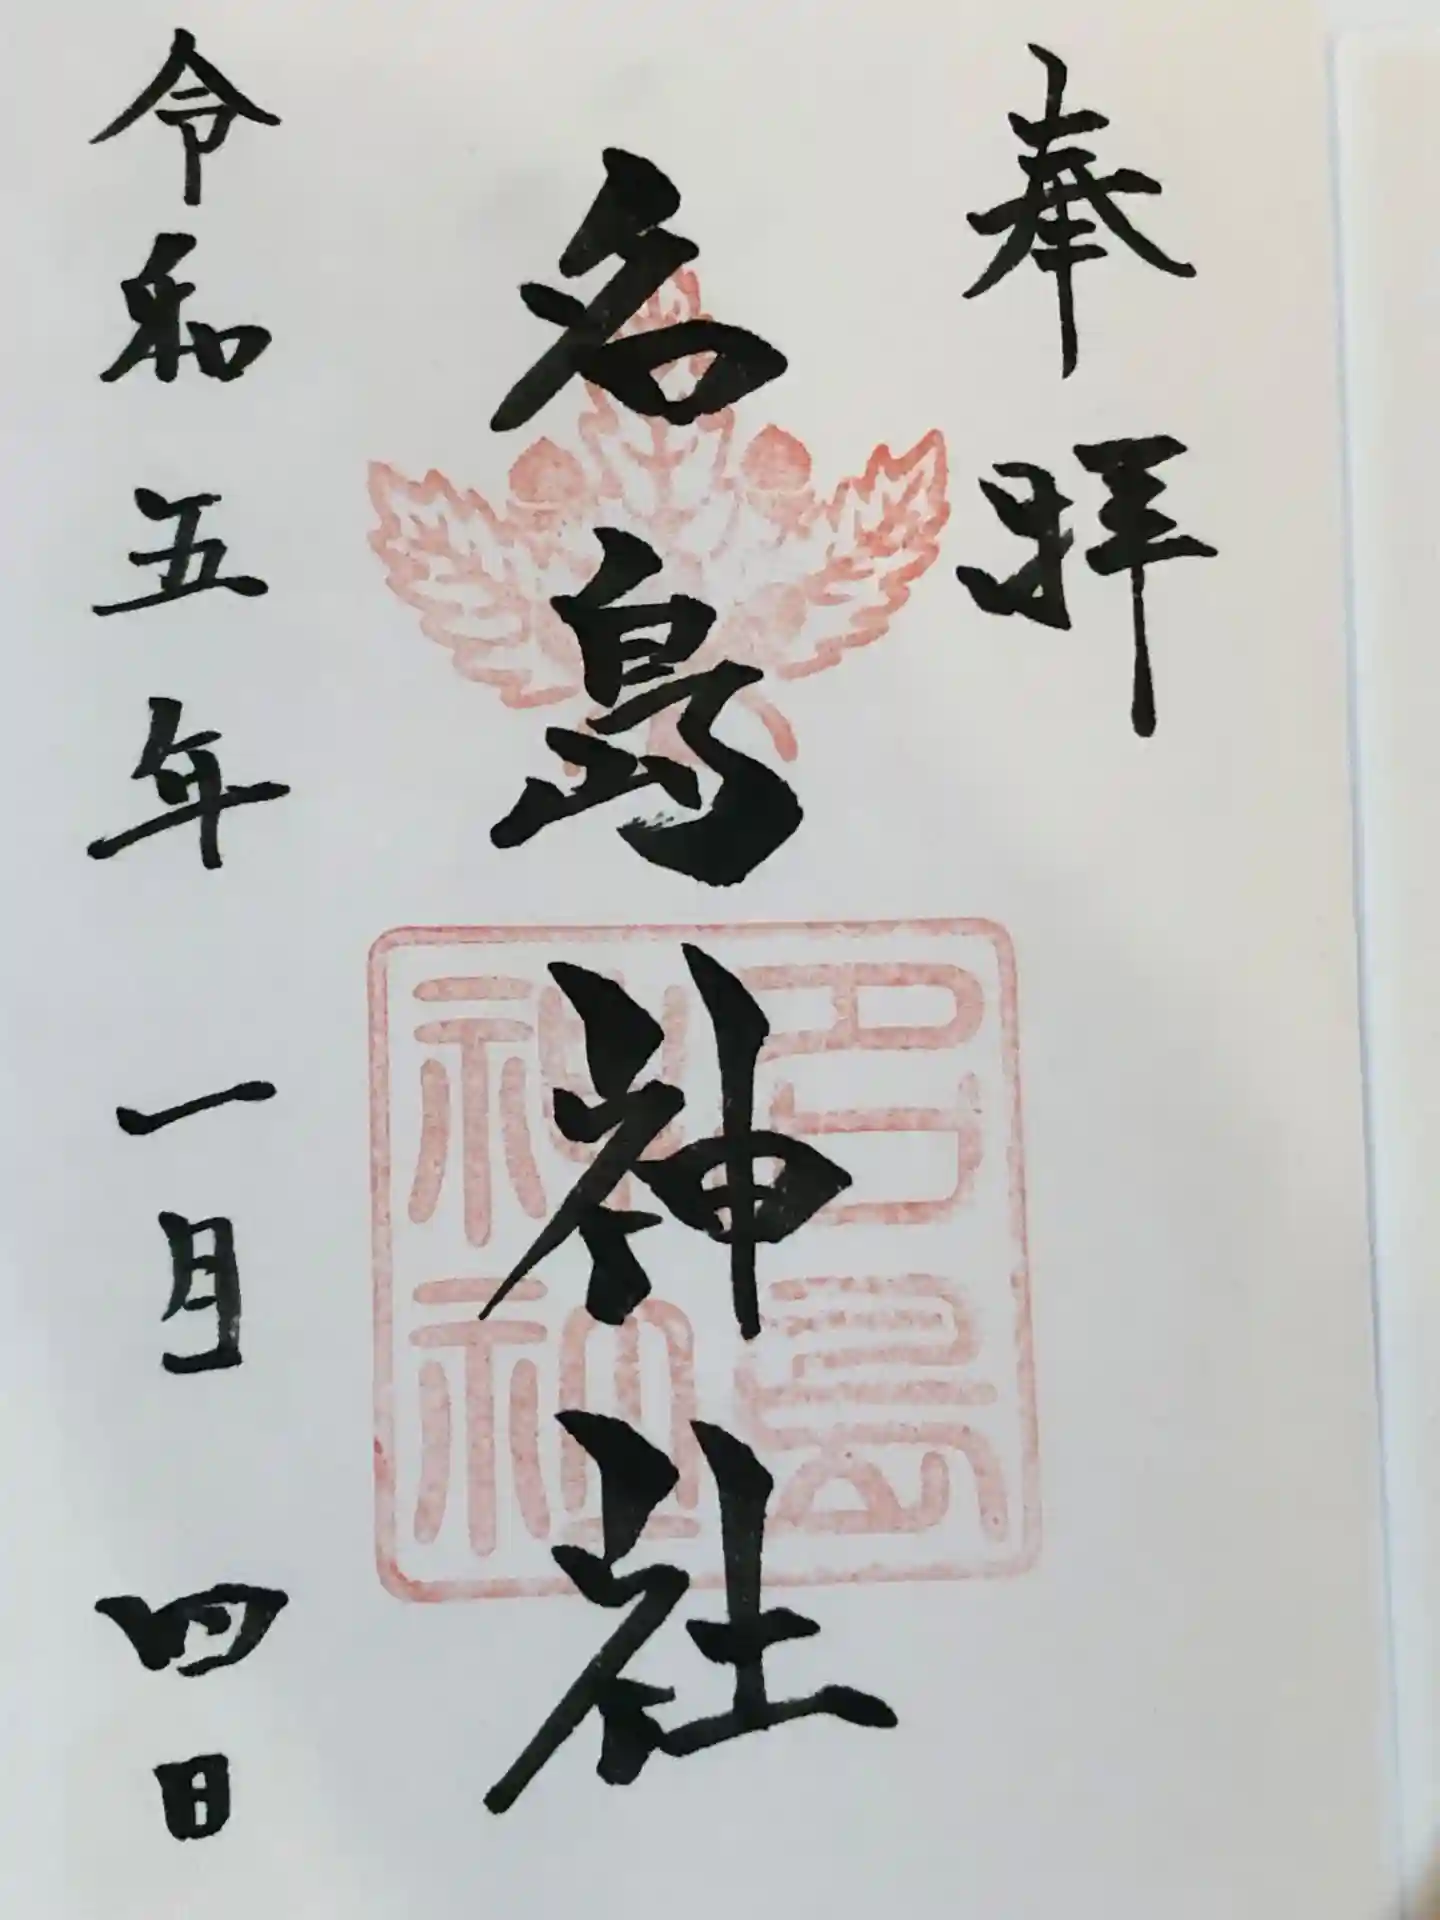 奉拝
名島神社
名島
神社
令和五年一月四日